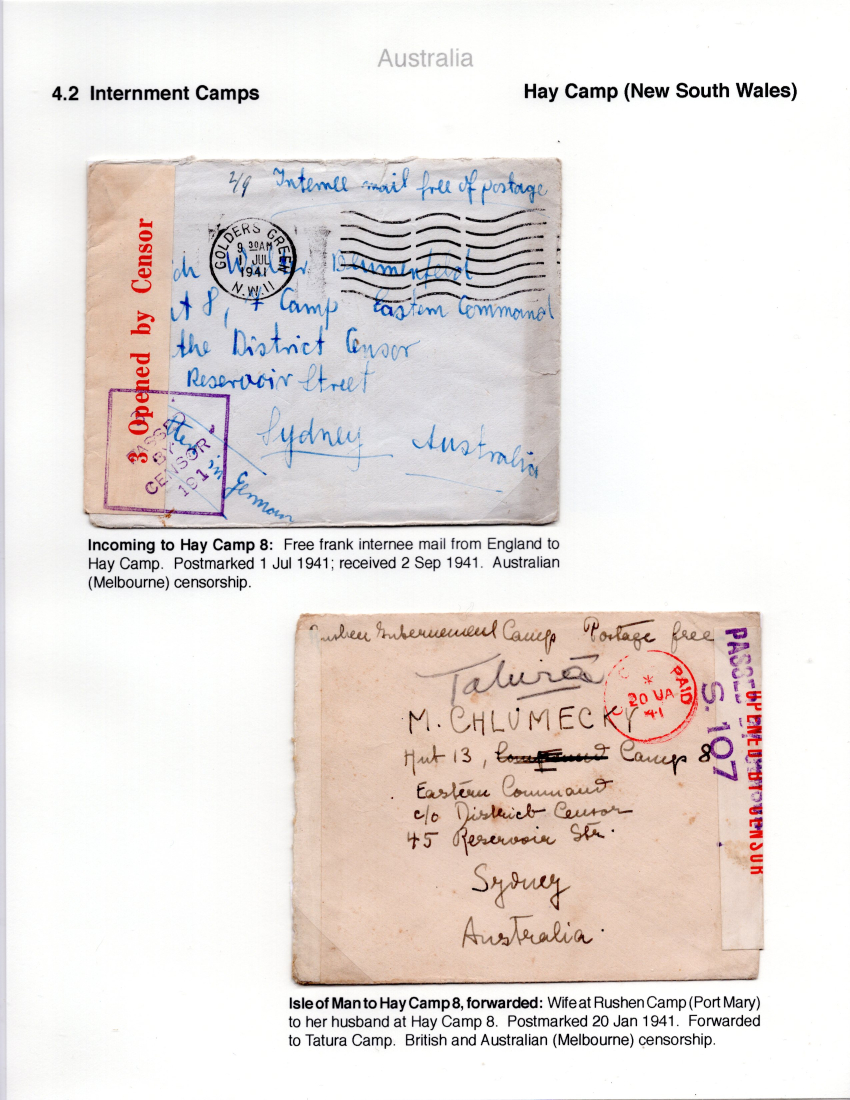 Australia
4.2 Internment Camps
Hay Camp (New South Wales)
2/9 Internee mail free of postage
GOLDERS GREEN
9 30AM
1 JUL
1941
N.W.11
Blumenfeld
8, 7 Camp Eastern Command
the District Censor
Reservoir Street
Sydney Australia
in German
3 Opened by Censor
PASSED
BY
CENSOR
191
Incoming to Hay Camp 8: Free frank internee mail from England to
Hay Camp. Postmarked 1 Jul 1941; received 2 Sep 1941. Australian
(Melbourne) censorship.
Rushen Internement Camp Postage free
Tatura
PAID
20 JA
41
M. CHLUMECKY
Hut 13, Camp 8
Eastern Command
c/o District Censor
45 Reservoir Str.
Sydney
Australia.
PASSED BY CENSOR
S. 107
OPENED BY CENSOR
Isle of Man to Hay Camp 8, forwarded: Wife at Rushen Camp (Port Mary)
to her husband at Hay Camp 8. Postmarked 20 Jan 1941. Forwarded
to Tatura Camp. British and Australian (Melbourne) censorship.